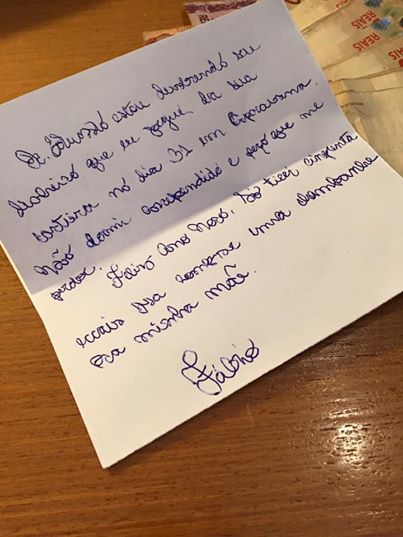 Sr. Eduardo estou devolvendo seu
dinheiro que eu peguei da sua
carteira no dia 31 em Copacabana.
Não dormi arrependido e peço que me
perdoe. Feliz Ano Novo, Só tirei cinquenta
reais pra comprar uma champanhe
pra minha mãe.
Fábio
REAIS
REAIS